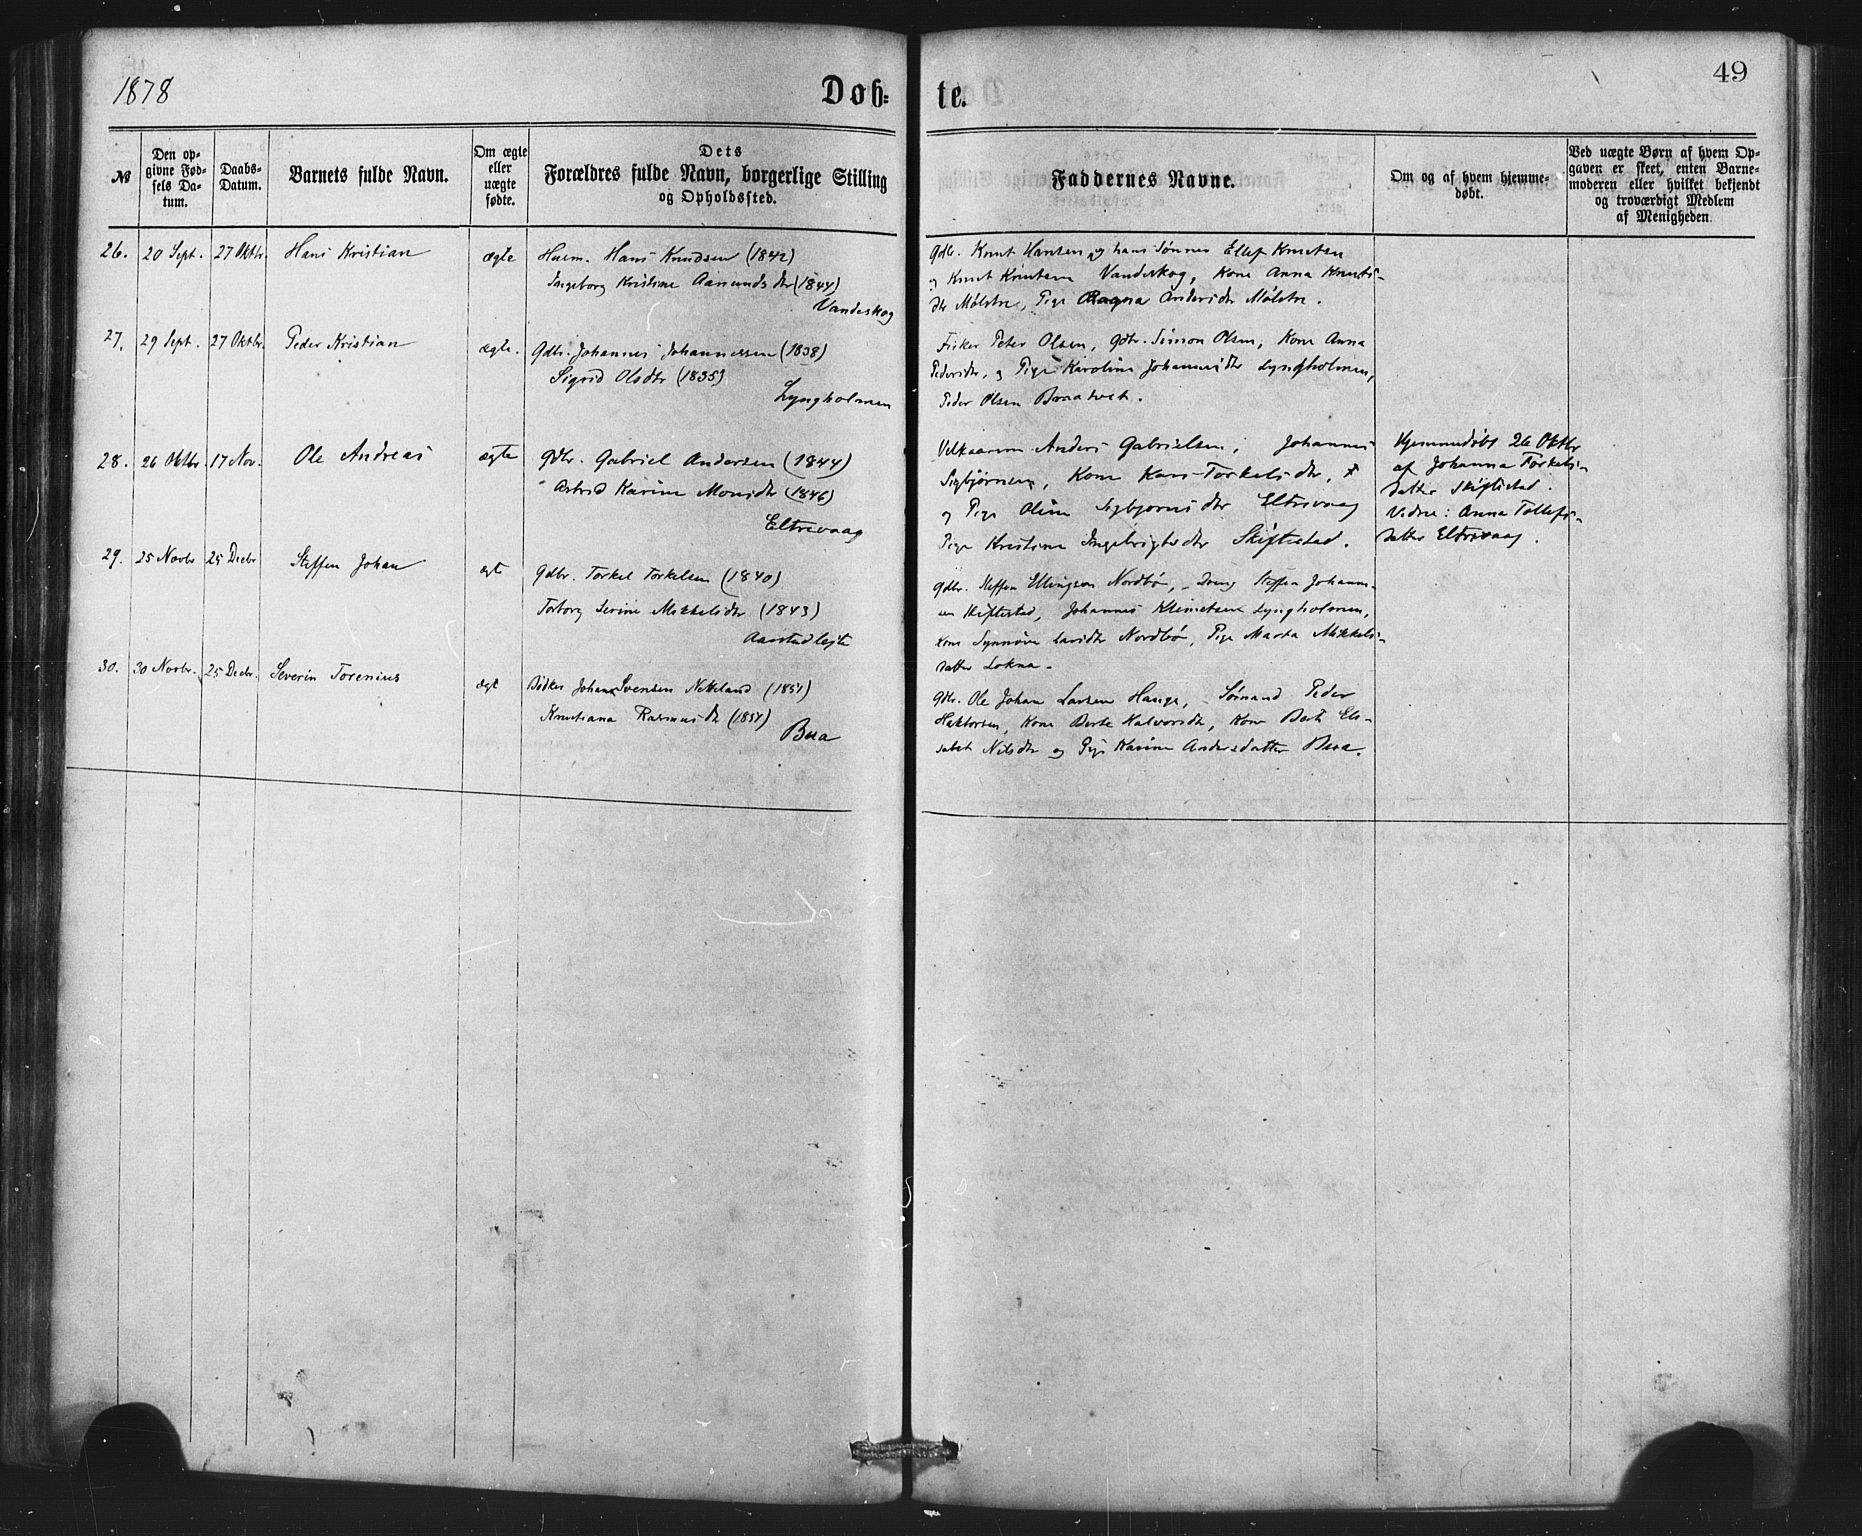 1878
Døb=
te.
49
№
Den op-
givne Fød-
sels Da-
tum.
Daabs-
Datum.
Barnets fulde Navn.
Om ægte
eller
uægte
fødte.
Dets
Forældres fulde Navn, borgerlige Stilling
og Opholdssted.
Faddernes Navne.
Om og af hvem hjemme-
døbt.
Ved uægte Børn af hvem Op-
gaven er skeet, enten Barne-
moderen eller hvilket bekjendt
og troværdigt Medlem
af Menigheden.
26. 20 Sept. 27 Oktbr. Hans Kristian ægte Husm. Hans Knudsen (1842)
Ingeborg Kristine Aamundsdtr (1844)
Vandeskog
Gdbr. Knut Hansen og hans Sønner Ellef Knutsen
og Knut Knutsen Vandeskog, Kone Anna Knuts-
dtr Mølstre, Pige Ragna Andersdtr Mølstre.
27. 29 Sept. 27 Oktbr. Peder Kristian ægte. Gdbr. Johannes Johannessen (1838)
Sigrid Olsdtr (1835)
Lyngholmen
Fisker Peter Olsen, Gdbr. Simon Olsen, Kone Anna
Pedersdtr, og Pige Karoline Johannesdtr Lyngholmen,
Peder Olsen Braatvet.
28. 26 Oktbr. 17 Nov. Ole Andreas ægte Gdbr. Gabriel Andersen (1844)
Astrid Karine Monsdtr (1846)
Eltrevaag
Anders Gabrielsen, Johannes
Sigbjørnsen, Kone Kari Torkelsdtr,
og Pige Oline Sigbjørnsdtr Eltrevaag
Pige Kristine Ingebrigtsdtr Skiftestad.
Hjemmedøbt 26 Oktbr
af Johanna Torkels-
datter Skiftestad.
Vidne: Anna Tollefs-
datter Eltrevaag.
29. 25 Novbr 25 Decbr Steffen Johan ægt Gdbr. Torkel Torkelsen (1840)
Torborg Serine Mikkelsdtr (1843)
Gdbr. Steffen Ellingsen Nordbø, Dreng Steffen Johann-
sen Skiftestad, Johannes Klemetsen Lyngholmen,
Kone Synnøve Larsdtr Nordbø, Pige Marta Mikkels-
datter Lokna.
30. 30 Novbr. 25 Decbr. Severin Torenius ægt Bødker Johan Svensen Netteland (1854)
Kristiana Rasmusdtr (1854)
Bua
Gdbr. Ole Johan Larsen Hauge, Sømand Peder
Haktorsen, Kone Berte Halvorsdtr, Kone Berte Els-
sabet Nilsdtr og Pige Karine Andersdatter Bua.